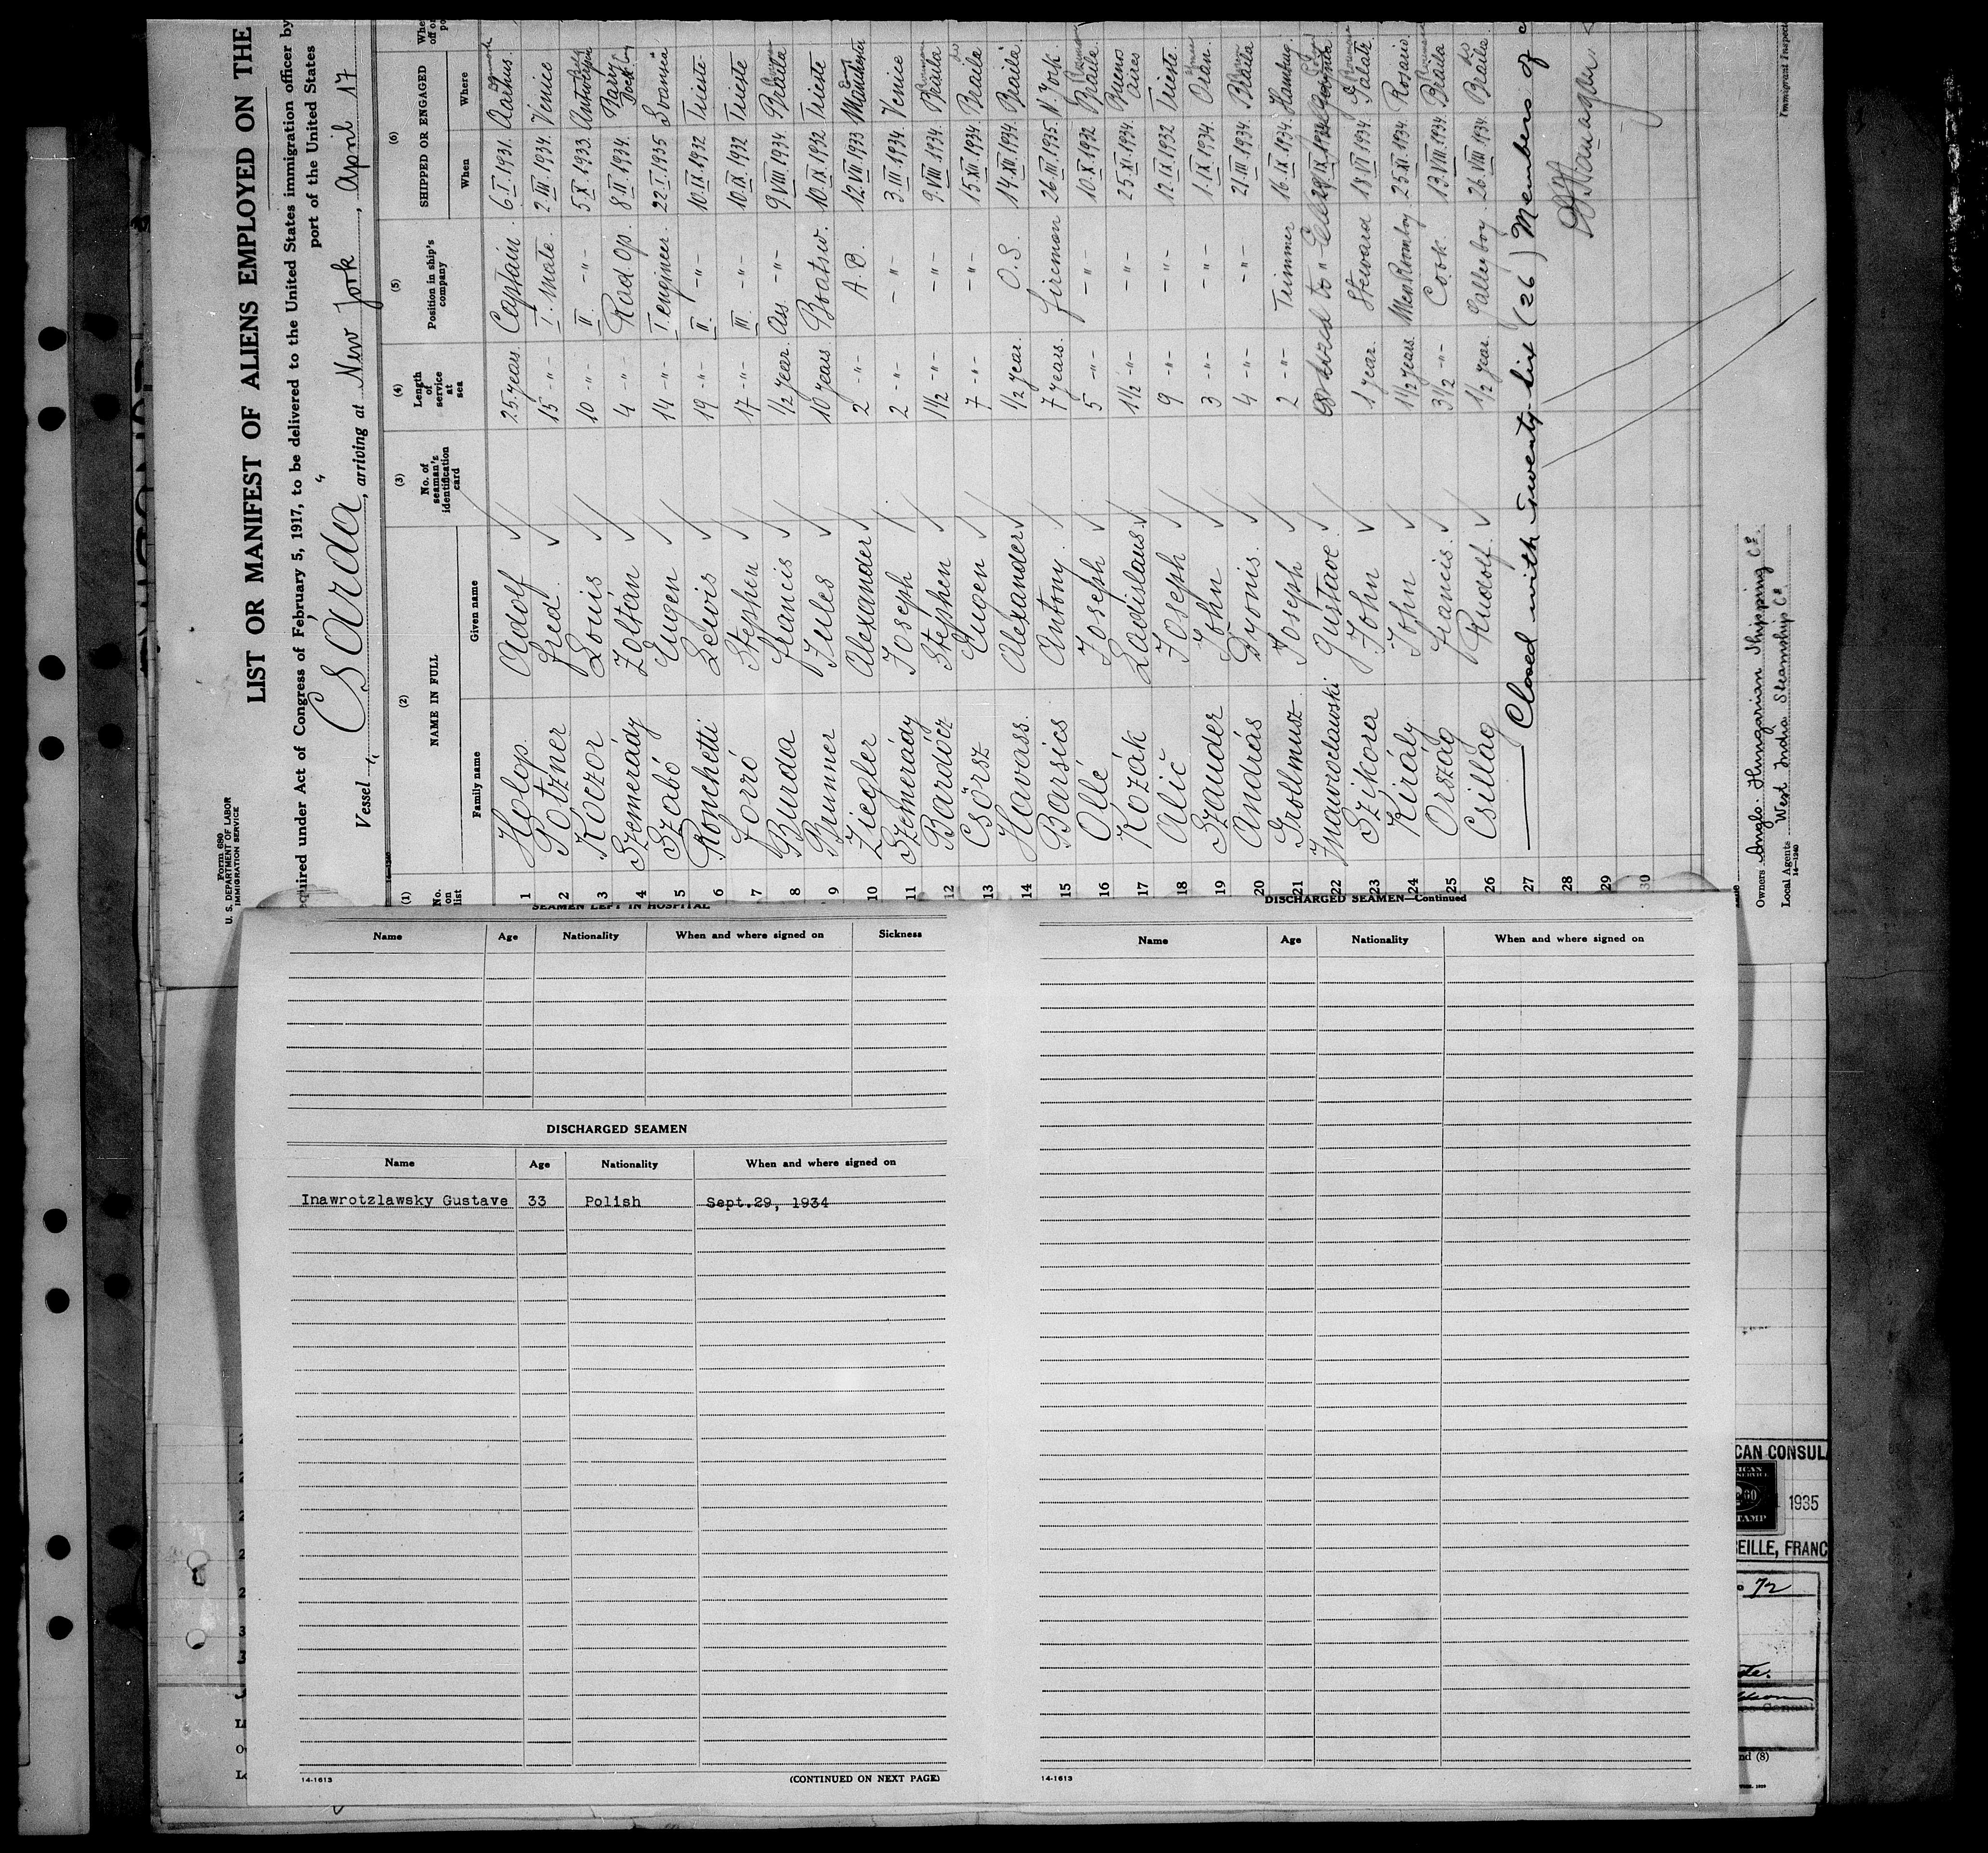 Form 680
U. S. DEPARTMENT OF LABOR
IMMIGRATION SERVICE
LIST OR MANIFEST OF ALIENS EMPLOYED ON THE
equired under Act of Congress of February 5, 1917, to be delivered to the United States immigration officer by
port of the United States
Vessel "Csárda", arriving at New York, April 17
(1) (2) (3) (4) (5) (6)
No. on list NAME IN FULL No. of seaman's identification card Length of service at sea Position in ship's company SHIPPED OR ENGAGED
Family name Given name When Where
1 Holop. Adolf ✓ 25 years. Captain. 6.I.1931. Aarhus.
2 Potzner Fred. ✓ 15 -"- I. Mate. 2.III.1934. Venice
3 Koczor Louis ✓ 10 -"- II. -"- 5.X.1933. Antwerpen
4 Szemerády Zoltán ✓ 4 -"- Rad Op. 8.II.1934. Barry Dock.
5 Szabó Eugen ✓ 14 -"- I engineer. 22.I.1935 Svansea
6 Ronchetti Lewis ✓ 19 -"- II. -"- 10.IX.1932 Trieste.
7 Jorró Stephen ✓ 17 -"- III. -"- 10.IX.1932 Trieste
8 Burda Francis ✓ 1/2 year. Ass. -"- 9.VIII.1934. Braila
9 Brunner Jules ✓ 10 years. Boatsw. 10.IX.1932 Trieste
10 Ziegler Alexander ✓ 2 -"- A.B. 12.VII.1933 Manchester
11 Szemerády Joseph ✓ 2 -"- -"- 3.III.1934. Venice
12 Bardócz Stephen ✓ 1 1/2 -"- -"- 9.VIII.1934. Braila
13 Csörsz Eugen ✓ 7 -"- -"- 15.XII.1934 Braila
14 Havass. Alexander ✓ 1/2 year. O.S. 14.XII.1934. Braila.
15 Barsics Antony. ✓ 7 years. fireman 26.III.1935 N. York.
16 Ollé Joseph ✓ 5 -"- -"- 10.X.1932 Braila.
17 Kozák Ladislaus. ✓ 1 1/2 -"- -"- 25.XI.1934. Buenos Aires
18 Alič Joseph ✓ 9 -"- -"- 12.IX.1932 Trieste.
19 Szauder John ✓ 3 -"- -"- 1.IX.1934. Oran.
20 András Dyonis. ✓ 4 -"- -"- 21.III.1934. Braila
21 Grollmusz. Joseph ✓ 2 -"- Trimmer 16.IX.1934. Hamburg.
22 Inawroclawski Gustave. ✓
23 Szikora John ✓ 1 year. Steward 18.VI.1934. Galatz.
24 Király John ✓ 1 1/2 years. MessRoomboy 25.XI.1934. Rosario
25 Ország Francis. ✓ 3 1/2 -"- Cook. 13.VIII.1934. Braila
26 Csillag Rudolf. ✓ 1/2 year. Galleyboy. 26.VIII.1934. Braila
27 Closed with twenty-six (26) Members of
28
29
30
Owners Anglo-Hungarian Shipping Co.
Local Agents West India Steamship Co
14-1240
Immigrant Inspect
SEAMEN LEFT IN HOSPITAL
Name Age Nationality When and where signed on Sickness
DISCHARGED SEAMEN
Name Age Nationality When and where signed on
Inawrotzlawsky Gustave 33 Polish Sept.29, 1934
14-1613 (CONTINUED ON NEXT PAGE)
DISCHARGED SEAMEN—Continued
Name Age Nationality When and where signed on
14-1613
CAN CONSUL
1935
TAMP
EILLE, FRANC
72
nd (8)